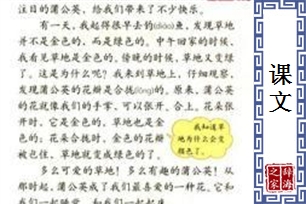 注目的蒲公英,给我们带来了不少快乐。
有一天,我起得很早去钓(diào)鱼,发现草地
并不是金色的,而是绿色的。中午回家的时候,
我看见草地是金色的,傍晚的时候,草地又变绿
了。这是为什么呢?我来到草地上,仔细观察,
发现蒲公英的花瓣是合拢(lǒng)的。原来,蒲公英
的花就像我们的手掌,可以张开、合上。花朵张
开时,它是金色的,草地也是金
色的;花朵合拢时,金色的花瓣
被包住,草地就变成绿色的了。
我知道草
地为什么会变
颜色了。
多么可爱的草地!多么有趣的蒲公英!从
那时起,蒲公英成了我们最喜爱的一种花。它和
我们一起睡觉,和我们一起起床。
课文
辞海
之家